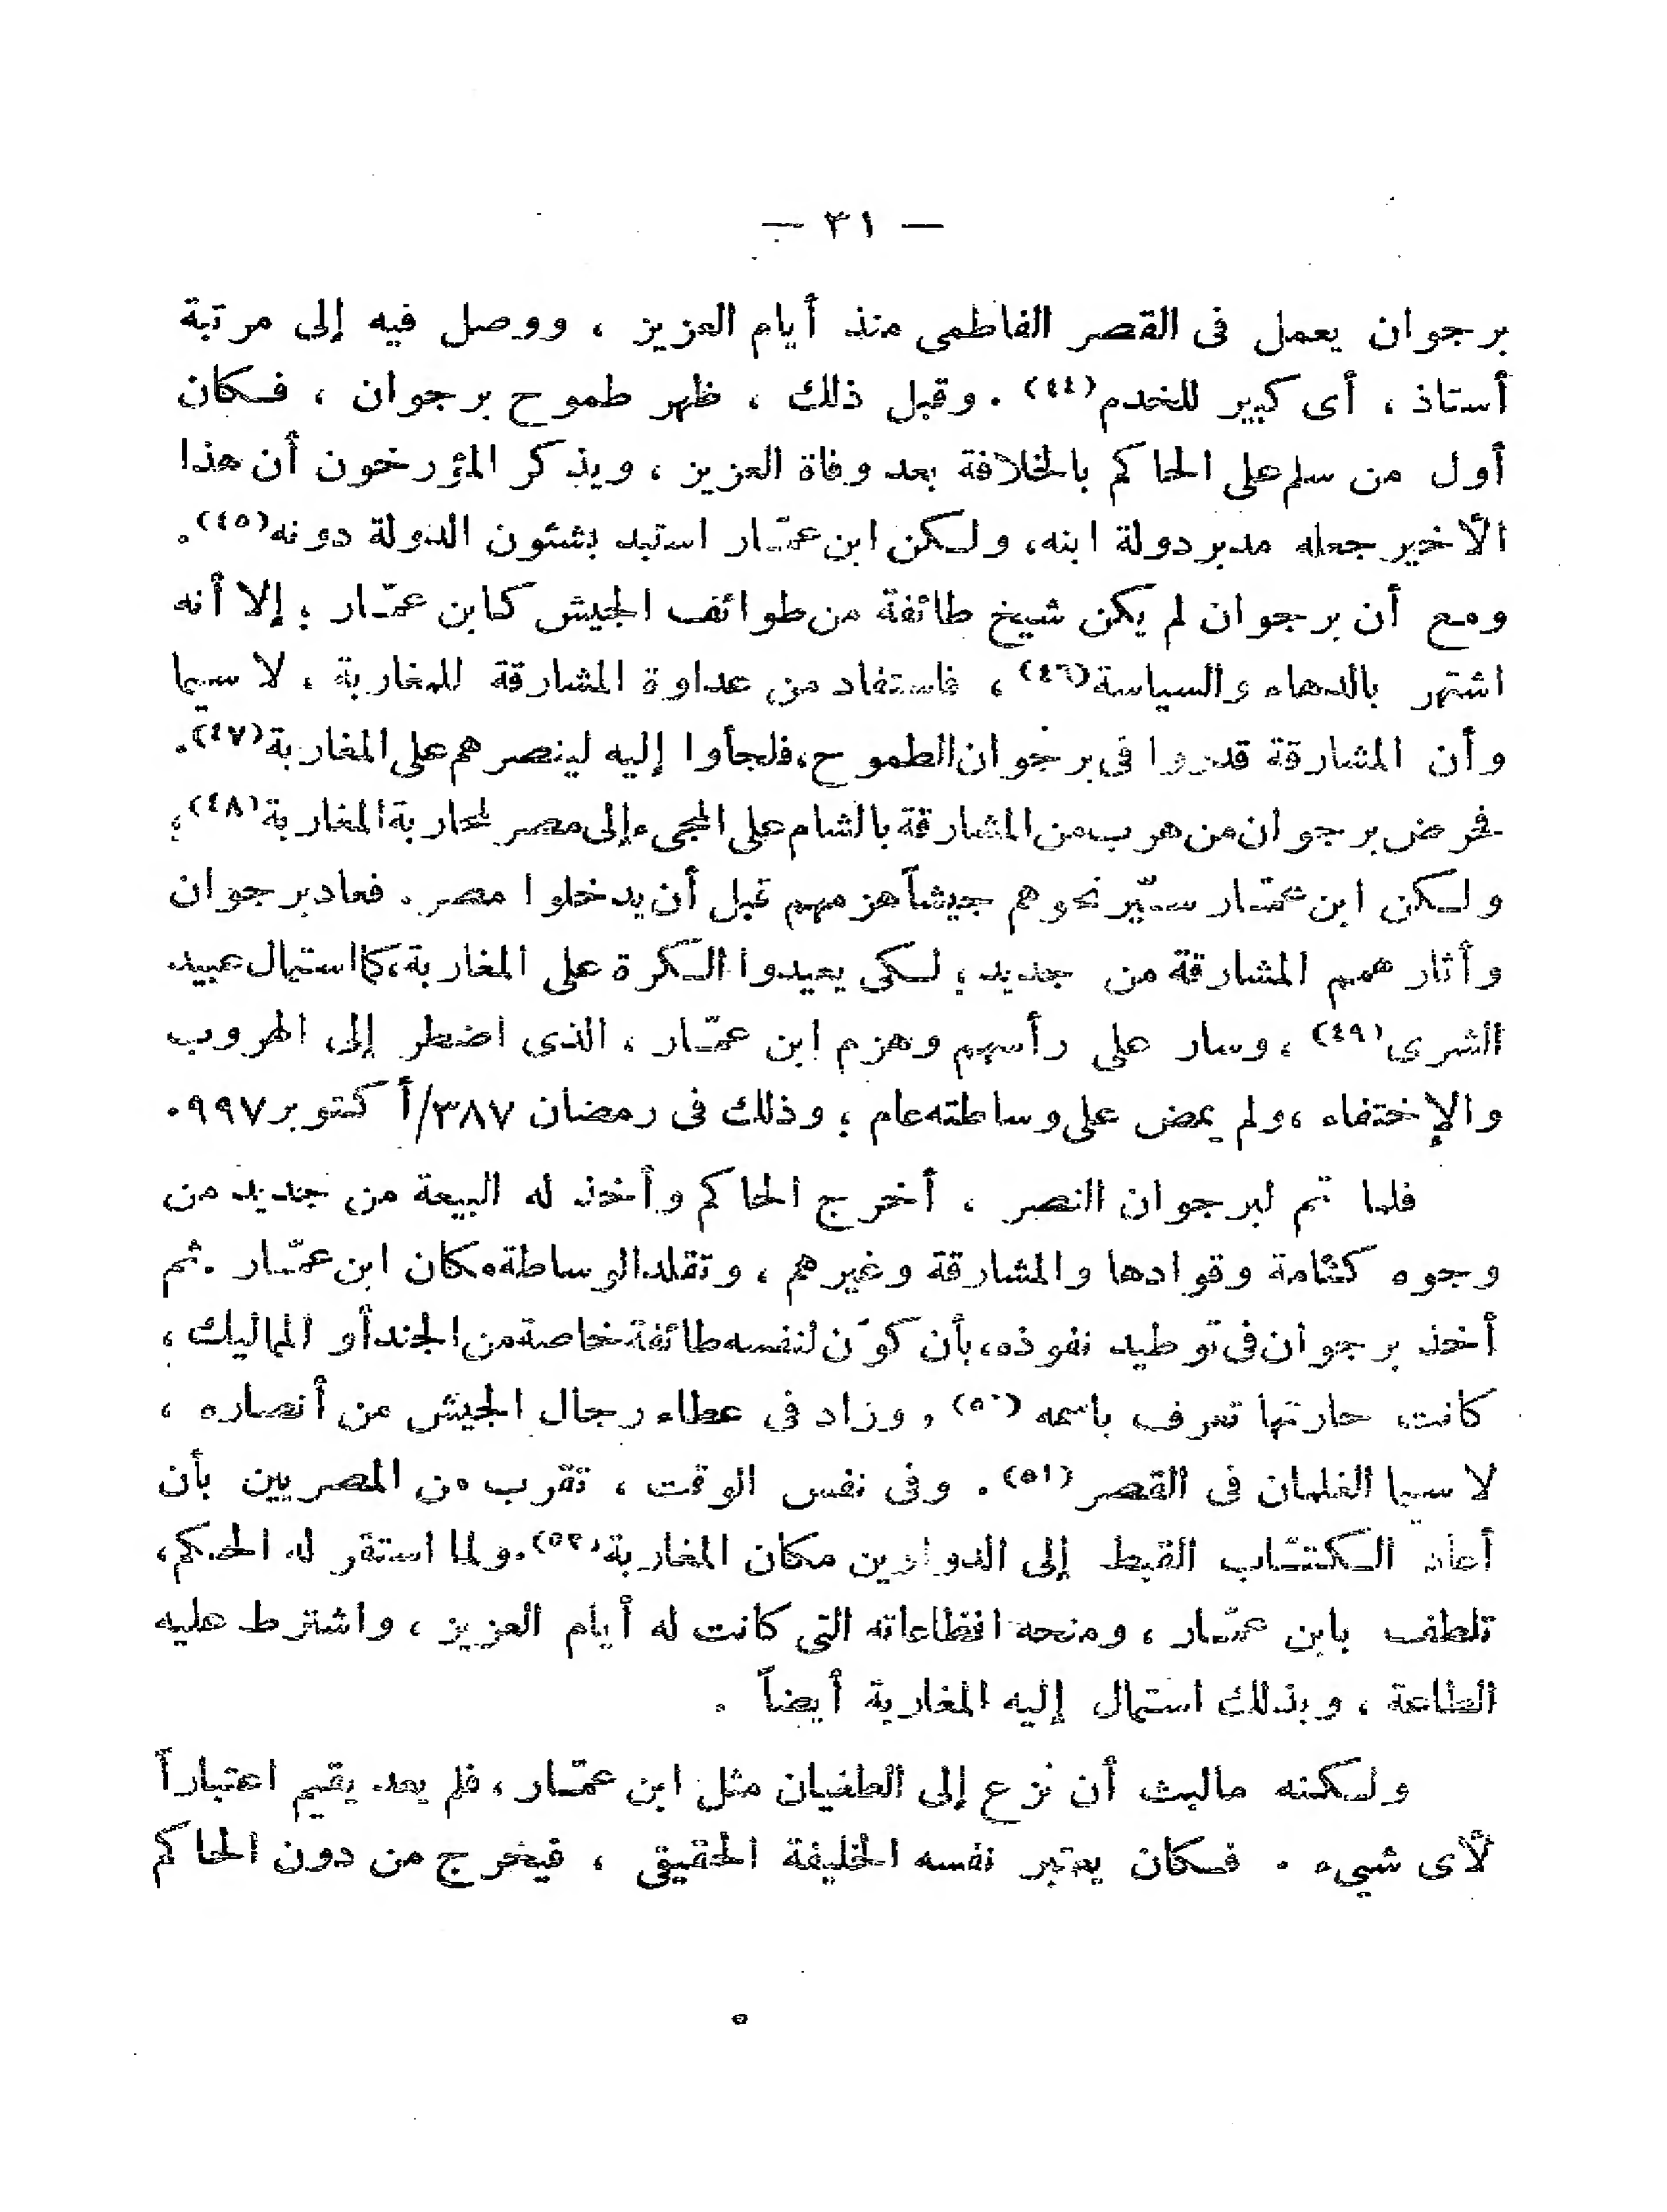 — ٣١ —
برجوان يعمل فى القصر الفاطمى منذ أيام العزيز ، ووصل فيه إلى مرتبة
أستاذ ، أى كبير للخدم(٤٤) . وقبل ذلك ، ظهر طموح برجوان ، فكان
أول من سلم على الحاكم بالخلافة بعد وفاة العزيز ، ويذكر المؤرخون أن هذا
الأخير جعله مدبر دولة ابنه، ولكن ابن عمّار استبد بشئون الدولة دونه(٤٥).
ومع أن برجوان لم يكن شيخ طائفة من طوائف الجيش كابن عمّار ؛ إلا أنه
اشتهر بالدهاء والسياسة(٤٦) ، فاستفاد من عداوة المشارقة للمغاربة ، لا سيما
وأن المشارقة قدروا فى برجوان الطموح، فلجأوا إليه لينصرهم على المغاربة(٤٧).
فحرض برجوان من هرب من المشارقة بالشام على المجىء إلى مصر لمحاربة المغاربة(٤٨)؛
ولكن ابن عمّار سيّر نحوهم جيشاً هزمهم قبل أن يدخلوا مصر . فعاد برجوان
وأثار همم المشارقة من جديد ؛ لكى يعيدوا الكرة على المغاربة، كما استمال عبيد
الشرى(٤٩) ، وسار على رأسهم وهزم ابن عمّار ، الذى اضطر إلى الهروب
والإختفاء ، ولم يمض على وساطته عام ؛ وذلك فى رمضان ٣٨٧/أكتوبر ٩٩٧.
فلما تم لبرجوان النصر ، أخرج الحاكم وأخذ له البيعة من جديد من
وجوه كتامة وقوادها والمشارقة وغيرهم ، وتقلد الوساطة مكان ابن عمّار . ثم
أخذ برجوان فى توطيد نفوذه، بأن كوّن لنفسه طائفة خاصة من الجند أو المماليك ،
كانت حارتها تعرف باسمه (٥٠) ، وزاد فى عطاء رجال الجيش من أنصاره ،
لا سيما الغلمان فى القصر (٥١) . وفى نفس الوقت ، تقرب من المصريين بأن
أعاد الكتّاب القبط إلى الدواوين مكان المغاربة(٥٢). ولما استقر له الحكم،
تلطف بابن عمّار ، ومنحه اقطاعاته التى كانت له أيام العزيز ، واشترط عليه
الطاعة ، وبذلك استمال إليه المغاربة أيضاً .
ولكنه مالبث أن نزع إلى الطغيان مثل ابن عمّار ، فلم يعد يقيم اعتباراً
لأى شىء . فكان يعتبر نفسه الخليفة الحقيقى ، فيخرج من دون الحاكم